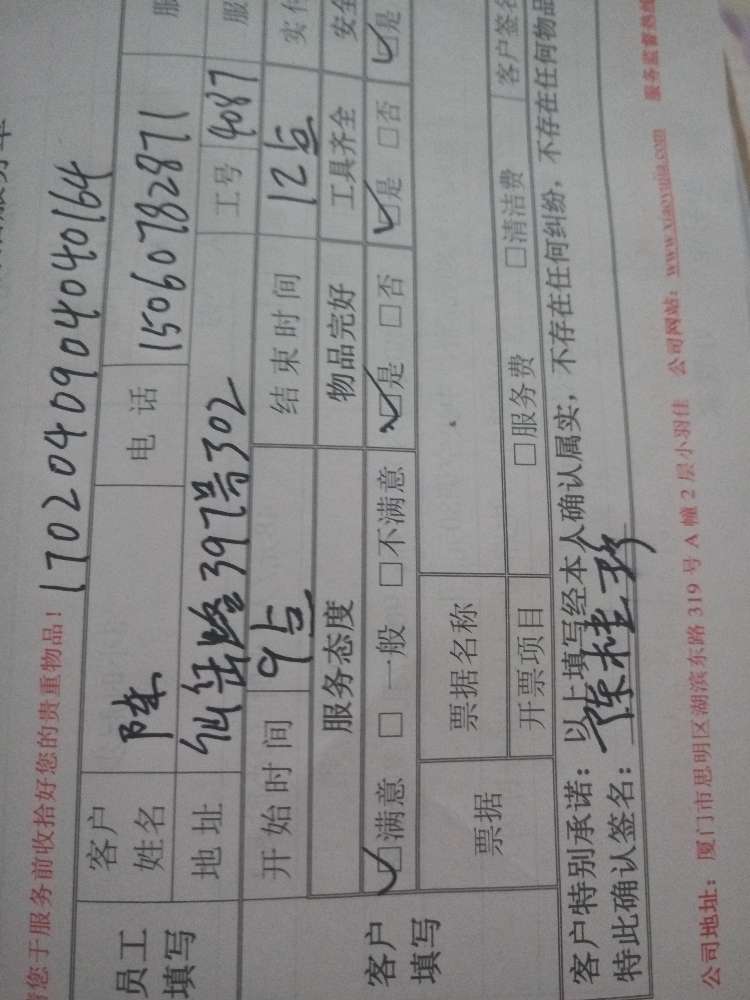 请您于服务前收拾好您的贵重物品! 170204090404040164
员工填写
客户姓名 陈 电话 15060782871 服
地址 仙岳路397号302 工号 4087 服
客户填写
开始时间 9点 结束时间 12点 实
服务态度 物品完好 工具齐全 安全
☑满意 □一般 □不满意 ☑是 □否 ☑是 □否 ☑是
票据 票据名称
开票项目 □服务费 □清洁费 客户签名
客户特别承诺：以上填写经本人确认属实，不存在任何纠纷，不存在任何物品
特此确认签名：陈桂珍
公司地址：厦门市思明区湖滨东路319号A幢2层小羽佳 公司网站：www.xiaoyujia.com 服务监督热线